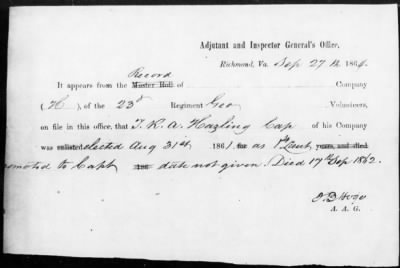 Adjutant and Inspector General's Office,
Richmond, Va. Sep 27th 1864.
Record
It appears from the Muster Roll of Company
(H), of the 23d Regiment Geo Volunteers,
on file in this office, that T. K. A. Hazling Cap of his Company
was enlisted elected Aug 31st 1861, for as 1st Lieut, years, and died
promoted to Capt date not given. Died 17th Sep 1862.
A. A. G.